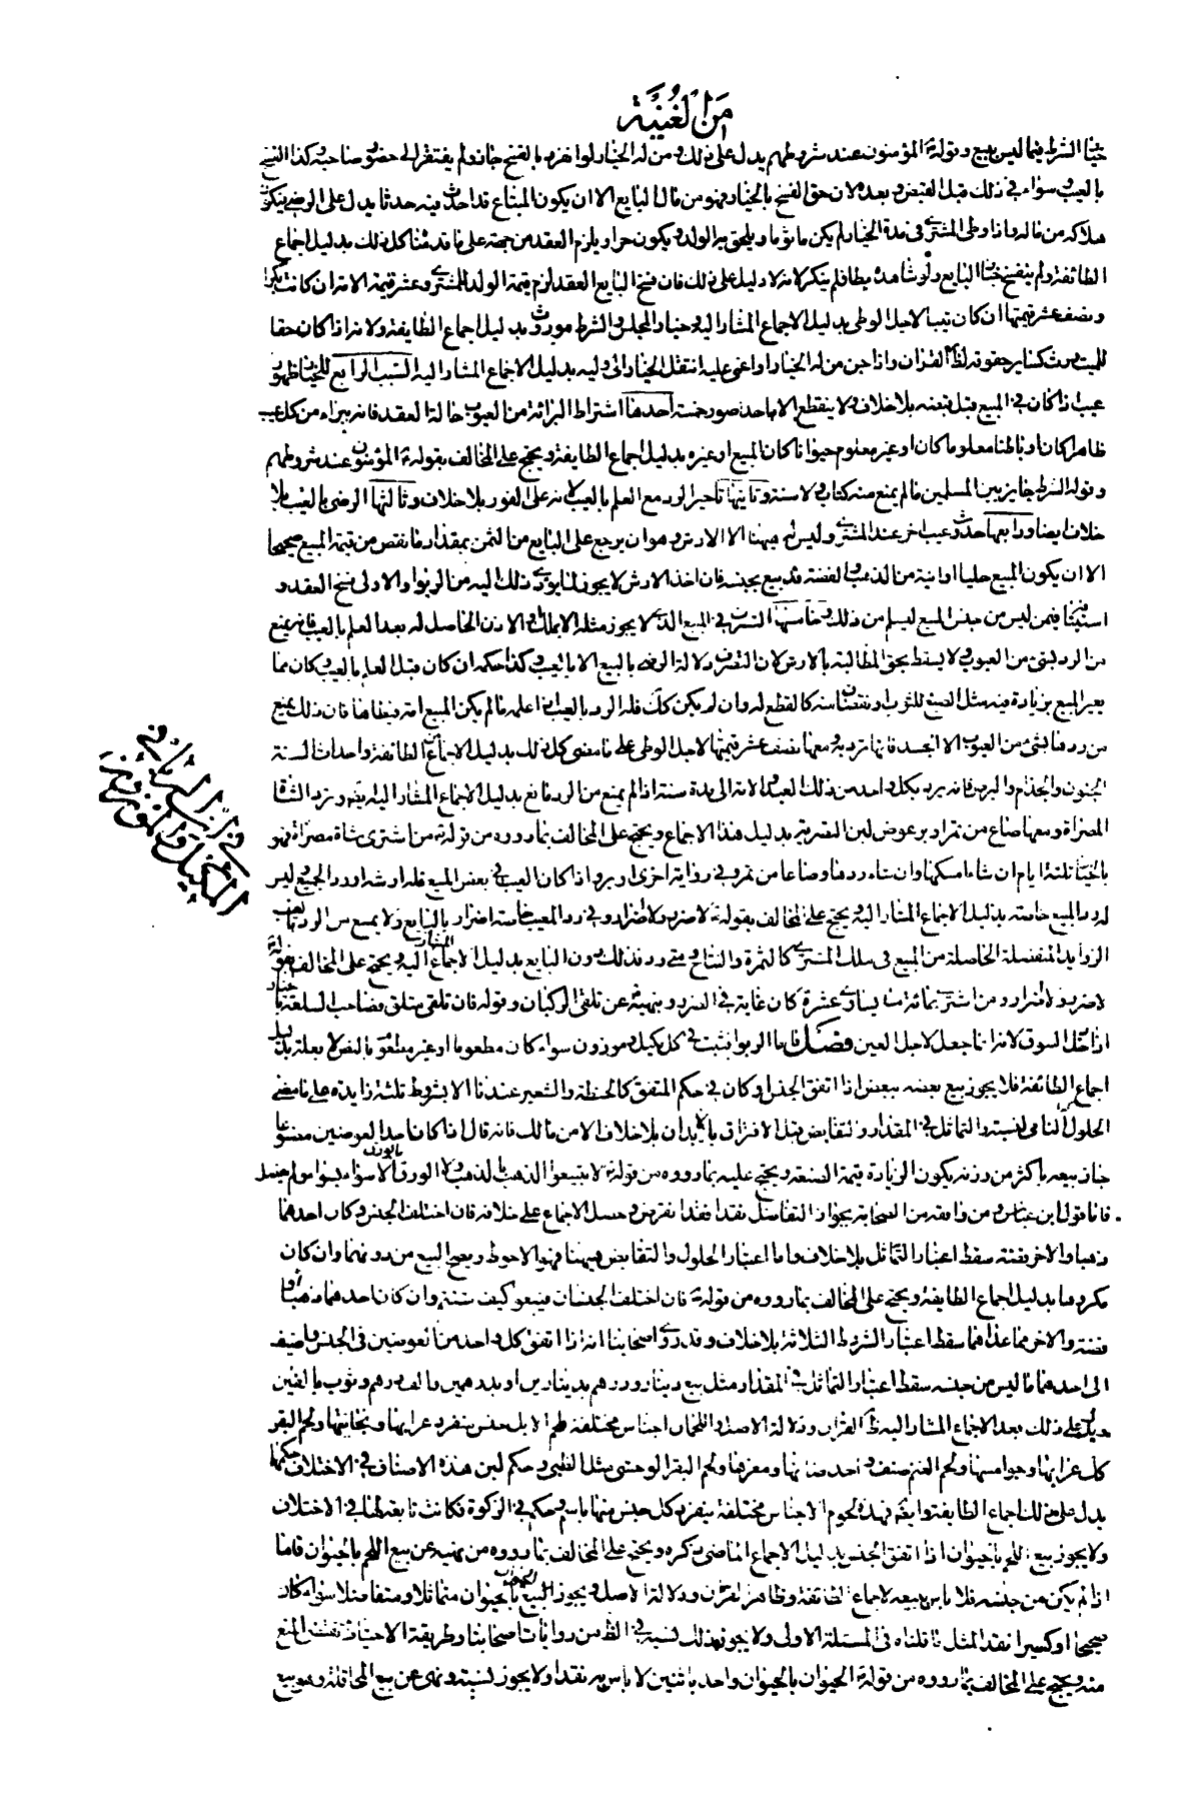 من الغنية
خيار الشرط فيما ليس ببيع وقوله ع المؤمنون عند شروطهم يدل على ذلك ومن له الخيار لو انفرد بالفسخ جاز ولم يفتقر الى حضور صاحبه وكذا الفسخ
بالعيب وسواء في ذلك قبل القبض وبعده لان حق الفسخ بالخيار فهو من مال البايع الا ان يكون المبتاع قد احدث فيه حدثا يدل على الرضى فيكون
هلاكه من ماله واذا وطى المشترى في مدة الخيار لم يكن مأثوما ويلحق به الولد ويكون حرا ويلزم العقد من جهته على ما قدمناه كل ذلك بدليل اجماع
الطائفة ولم ينفسخ خيار البايع ولو شاهده يطأ فلم ينكر لانه لا دليل على ذلك فان فسخ البايع العقد لزم قيمة الولد للمشترى وعشر قيمة الامة ان كانت بكرا
ونصف عشر قيمتها ان كان ثيبا لاجل الوطى بدليل الاجماع المشار اليه وخيار المجلس والشرط موروث بدليل اجماع الطايفة ولانه اذا كان حقا
للميت ورث كساير حقوقه لظاهر القرآن واذا جن من له الخيار او اغمى عليه انتقل الخيار الى وليه بدليل الاجماع المشار اليه السبب الرابع للخيار ظهور
عيب اذا كان في المبيع قبل قبضه بلا خلاف ولا ينقطع الا باحد صور خمسة احدها اشتراط البرائة من العيوب حالة العقد فانه يبرء من كل عيب
ظاهرا كان او باطنا معلوما كان او غير معلوم حيوانا كان المبيع او غيره بدليل اجماع الطايفة ويحتج على المخالف بقوله ع المؤمنون عند شروطهم
وقوله الشرط جايز بين المسلمين ما لم يمنع منه كتاب ولا سنة وثانيها تأخير الرد مع العلم بالعيب لانه على الفور بلا خلاف وثالثها الرضى بالعيب بلا
خلاف ايضا ورابعها حدوث عيب اخر عند المشترى وليس له هيهنا الا الارش وهو ان يرجع على البايع من الثمن بمقدار ما نقص من قيمة المبيع صحيحا
الا ان يكون المبيع حليا او انية من الذهب والفضة قد بيع بجنسه فان اخذ الارش لا يجوز لما يؤدى ذلك اليه من الربوا والاولى فسخ العقد و
استينافه بثمن ليس من جنس المبيع ليسلم من ذلك وخامسها التصرف في المبيع الذى لا يجوز مثله الا بملك او الاذن الحاصل له بعد العلم بالعيب فانه يمنع
من الرد بشئ من العيوب ولا يسقط بحق المطالبة بالارش لان التصرف دلالة الرضى بالبيع لا بالعيب وكذا حكمه ان كان قبل العلم بالعيب وكان مما
يغير المبيع بزيادة فيه مثل الصبغ للثوب او نقصان منه كالقطع له وان لم يكن كذلك فله الرد بالعيب اذا علمه ما لم يكن المبيع امة فيطأها فان ذلك يمنع
من ردها بشئ من العيوب الا الحبل فانها ترد به ومعها نصف عشر قيمتها لاجل الوطى على ما مضى كل ذلك بدليل الاجماع الطائفة واحداث السنة
الجنون والجذام والبرص فانه يرد بكل واحد من ذلك العبد والامة الى مدة سنة اذا لم يمنع من الرد مانع بدليل الاجماع المشار اليه وترد الشاة
المصراة ومعها صاع من تمر او بر عوض لبن التصرية بدليل هذا الاجماع ويحتج على المخالف بما رووه من قوله ع من اشترى شاة مصراة فهو
بالخيار ثلثة ايام ان شاء امسكها وان شاء ردها وصاعا من تمر وفي رواية اخرى او بر واذا كان العيب في بعض المبيع فله ارشه او رد الجميع وليس
له رد المبيع خاصة بدليل الاجماع المشار اليه ويحتج على المخالف بقوله ع لا ضرر ولا ضرار وفي رد المعيب خاصة اضرار بالبايع ولا يمنع من الرد بالعيب
الزوايد المنفصلة الحاصلة من المبيع في ملك المشترى كالثمرة والنتاج ومتى رد فذلك دون البايع بدليل الاجماع المشار اليه ويحتج على المخالف بقوله ع
لا ضرر ولا ضرار ومن اشترى بمائة ما يساوى عشرة كان غاية في الضرر وبنهيه ع عن تلقى الركبان وقوله فان تلقى متلق فصاحب السلعة بالخيار
اذا دخل السوق لانه انما جعل لاجل الغبن فصل فاما الربوا فيثبت في كل مكيل وموزون سواء كان مطعوما او غير مطعوم بالنص لا بعلة بدليل
اجماع الطائفة فلا يجوز بيع بعضه ببعض اذا اتفق الجنس او كان في حكم المتفق كالحنطة والشعير عندنا الا بشروط ثلثة زايدة على ما مضى
الحلول النافي للنسية والتماثل في المقدار والتقابض قبل الافتراق بالابدان بلا خلاف الا من مالك فانه قال اذا كان احد العوضين مصنوعا
جاز بيعه باكثر من وزنه ويكون الزيادة قيمة الصنعة ويحتج عليه بما رووه من قوله ع لا تبيعوا الذهب بالذهب ولا الورق بالورق الا سواء بسواء
فاما قول ابن عباس ومن وافقه من الصحابة بجواز التفاضل نقدا فقد انقرض وحصل الاجماع على خلافه فان اختلف الجنس وكان احدهما
ذهبا والاخر فضة سقط اعتبار التماثل بلا خلاف واما اعتبار الحلول والتقابض هيهنا فهو الاحوط ويصح البيع من دونهما وان كان
مكروها بدليل اجماع الطايفة ويحتج على المخالف بما رووه من قوله ع فان اختلف الجنسان فبيعوا كيف شئتم وان كان احدهما ذهبا او
فضة والاخر مما عداهما سقط اعتبار الشروط الثلاثة بلا خلاف وقد روى اصحابنا انه اذا اتفق كل واحد من العوضين في الجنس واضيف
الى احدهما ما ليس من جنسه سقط اعتبار التماثل في المقدار مثل بيع دينار ودرهم بدينارين او بدرهمين والف درهم وثوب بالفين
ويدل على ذلك بعد الاجماع المشار اليه ظاهر القرآن ودلالة الاصل واللحمان اجناس مختلفة فلحم الابل جنس بنفرد عرابها وبخاتيها ولحم البقر
كل عرابها وجواميسها ولحم الغنم صنف واحد ضانها ومعزها ولحم البقر الوحشى مثل الظبى وحكم لبن هذه الاصناف في الاختلاف حكمها
يدل على ذلك اجماع الطايفة وايضا فهذه لحوم الاجناس مختلفة ينفرد كل جنس منها باسم وحكم في الزكوة فكانت تابعة لها في الاختلاف
ولا يجوز بيع اللحم بالحيوان اذا اتفق الجنس بدليل الاجماع الماضى ذكره ويحتج على المخالف بما رووه من نهيه عن بيع اللحم بالحيوان فاما
اذا لم يكن من جنسه فلا باس ببيعه لاجماع الطائفة وظاهر القرآن ودلالة الاصل ويجوز البيع الحيوان بالحيوان متماثلا ومتفاضلا سواء كان
صحيحا او كسيرا نقدا لمثل ما قلناه في المسئلة الاولى ولا يجوز ذلك نسية في الظاهر من روايات اصحابنا وطريقة الاحتياط تقتضى المنع
منه ويحتج على المخالف بما رووه من قوله ع الحيوان بالحيوان واحد باثنين لا باس به نقدا ولا يجوز نسية ونهى عن بيع المحاقلة وهو بيع
في ان الربا في
المكيل والموزون